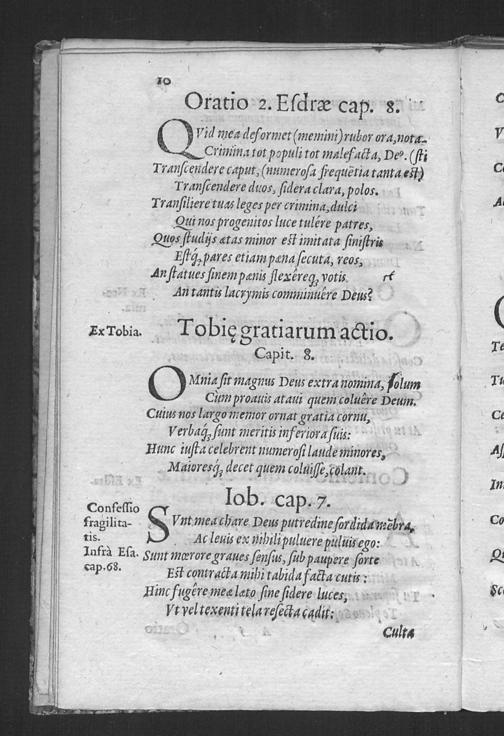 10
Oratio 2. Eſdræ cap. 8.
QVid mea deformet (memini) rubor ora, nota-
Crimina tot populi tot malefacta, Deº. (ſti
Tranſcendere caput, (numeroſa frequētia tanta eſt)
Tranſcendere duos, ſidera clara, polos.
Tranſiliere tuas leges per crimina, dulci
Qui nos progenitos luce tulére patres,
Quos ſtudijs ætas minor eſt imitata ſiniſtris
Eſtq́; pares etiam pæna ſecuta, reos,
An ſtatues finem pænis flexêreq́; votis
An tantis lacrymis comminuêre Deus?
Ex Tobia.
Tobię gratiarum actio.
Capit. 8.
OMnia ſit magnus Deus extra nomina, ſolum
Cùm proauis ataui quem coluêre Deum.
Cuius nos largo memor ornat gratia cornu,
Verbaq́; ſunt meritis inferiora ſuis:
Hunc iuſta celebrent numeroſi laude minores,
Maioreſq́; decet quem coluiſſe, colant.
Iob. cap. 7.
Confeſſio
fragilita-
tis.
Infrà Eſa.
cap. 68.
SVnt mea chare Deus putredine ſordida mēbra,
Ac leuis ex nihili puluere puluis ego:
Sunt mœrore graues ſenſus, ſub paupere ſorte
Eſt contracta mihi tabida facta cutis:
Hinc fugêre mea lato ſine ſidere luces,
Vt vel texenti tela reſecta cadit:
Culta